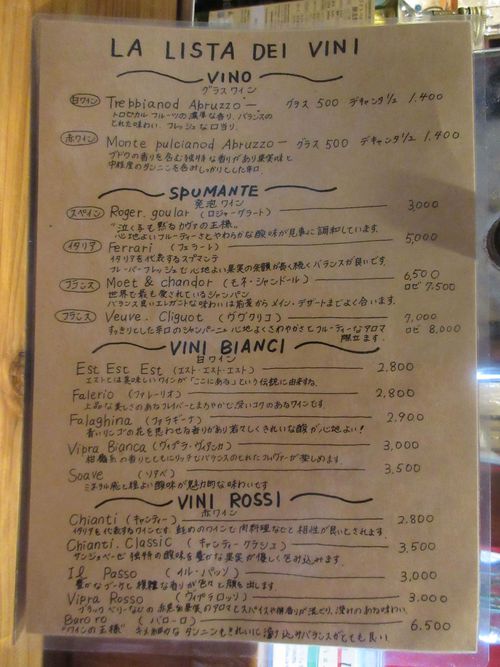 LA LISTA DEI VINI
VINO
グラスワイン
白ワイン Trebbianod Abruzzo — グラス 500 デキャンタ1/2 1.400
トロピカルフルーツの濃厚な香り、バランスの
とれた味わい。フレッシュな口当り。
赤ワイン Monte pulcianod Abruzzo — グラス 500 デキャンタ1/2 1.400
ブドウの香りを含む独特な香りがあり果実味と
中程度のタンニンを含みしっかりとした辛口
SPUMANTE
発泡ワイン
スペイン Roger. goular (ロジャーグラート) 3,000
"泣く子も黙るカヴァの王様"
心地よいフルーティーさとやわらかな酸味が見事に調和しています。
イタリア Ferrari (フェラーリ) 5,000
イタリアを代表するスプマンテ
フレーバーフレッシュで心地よい果実の余韻が長く続くバランスが良いです。
フランス Moet & chandor (モネ・シャンドール) 6,500
世界で最も愛されているシャンパン ロゼ 7.500
バランス良いエレガントな味わいは前菜からメイン・デザートまでよく合います。
フランス Veuve. Cliguot (ヴヴクリコ) 7,000
すっきりとした辛口のシャンパーニュ 心地よくさわやかさとフルーティーなアロマ ロゼ 8,000
際立ます。
VINI BIANCI
白ワイン
Est Est Est (エスト・エスト・エスト) 2,800
エストとは美味しいワインが「ここにある」という伝統に由来する。
Falerio (ファレーリオ) 2,800
上品な美しさのあるフレイバーとまろやかで深いコクのあるワインです。
Falaghina (ファラギーナ) 2,900
青いリンゴの花を思わせる香りがあり若々しくきれいな酸が心地よい!
Vibra Bianca (ヴィブラ・ヴィアンカ) 3,000
柑橘系の香りとともにリッチでバランスのとれたフレヴァーが楽しめます。
Soave (ソアベ) 3,500
ミネラル感と程よい酸味が魅力的な味わいです
VINI ROSSI
赤ワイン
Chianti (キャンティー) 2.800
イタリアを代表するワインです。軽めのワインで肉料理などと相性が良いとされます。
Chianti. Classic (キャンティークラシュ) 3,500
サンジョベーゼ独特の酸味を豊かな果実が優しく包み込みます。
Il Passo (イル・パッソ) 3,000
豊かなブーケと複雑な香りが色々と顔を出します。
Vibra Rosso (ヴィブラロッソ) 3,000
ブラックベリーなどの赤色果実のアロマとスパイスや樽香りが混ざり、深けのある味わい。
Baroro (バローロ) 6.500
"ワインの王様" キメ細かなタンニンもきれいに溶け込みバランスがとても良い